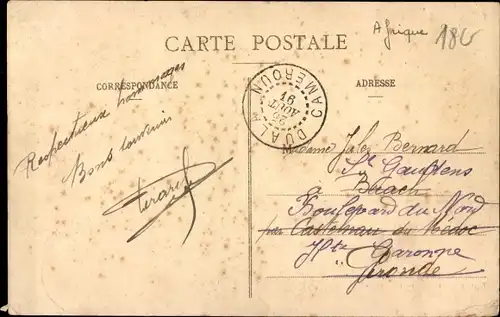 Afrique
180
CARTE POSTALE
CORRESPONDANCE
ADRESSE
DUALA CAMEROUN
26 AOUT 16
Respectueux hommages
Bons souvenirs
Madame Jules Bernard
St Gaudens
Brach
Boulevard du Nord
par Castelnau du Médoc
Hte Garonne
Gironde